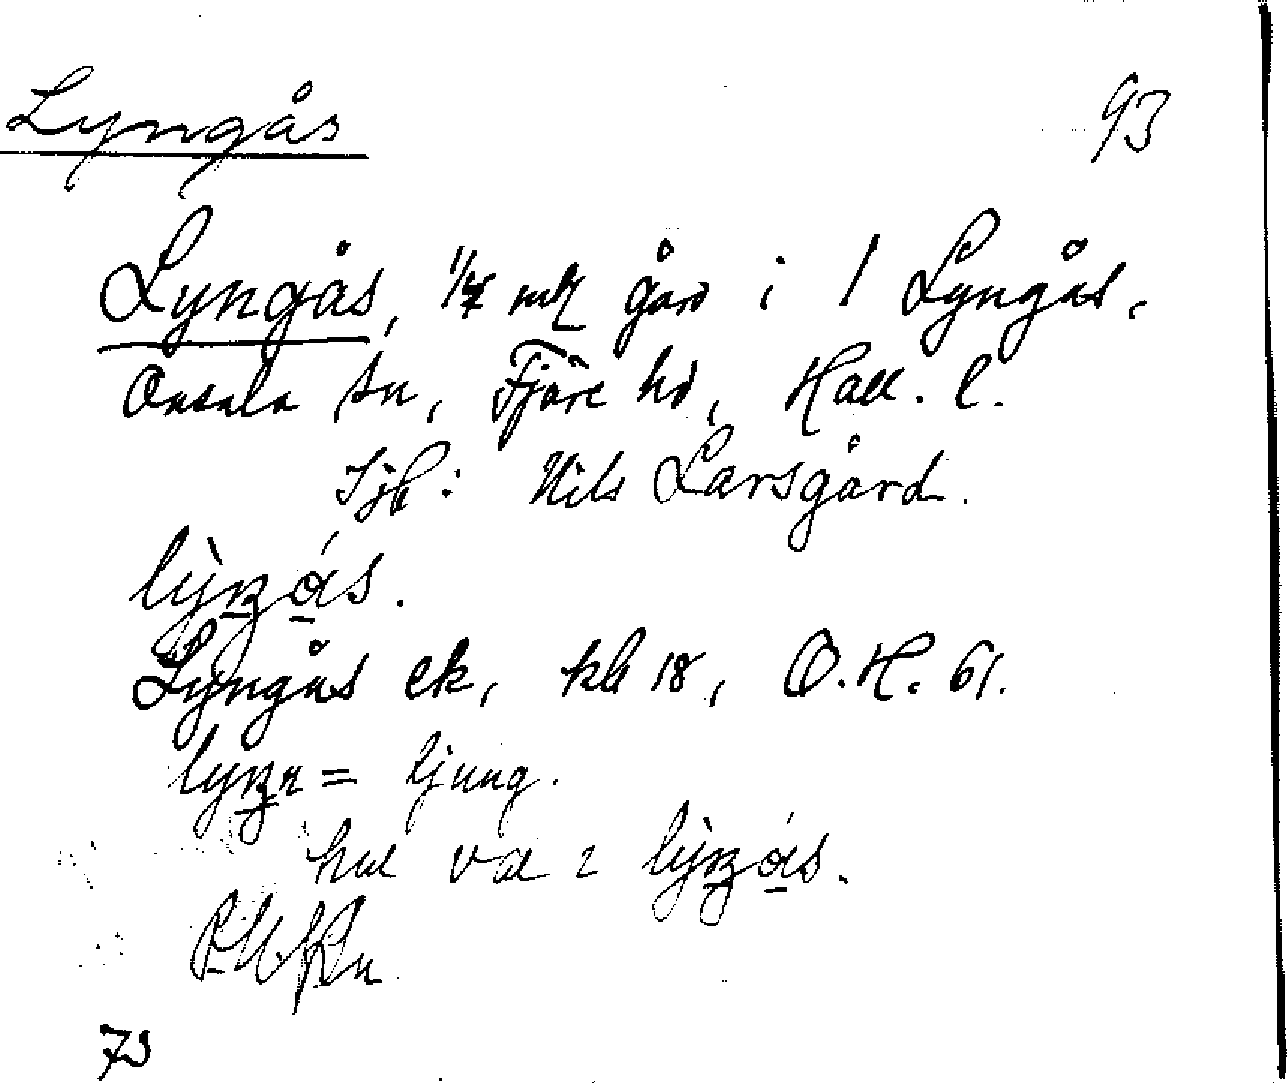 Lyngås 93
Lyngås, 1/4 mtl gård i 1 Lyngås,
Onsala sn, Fjäre hd, Hall. l.
Sjb: Nils Larsgård.
lỳŋås.
Lyngås ek, kbl 18, O.H. 61.
lyŋ = ljung.
lỳŋås.
73